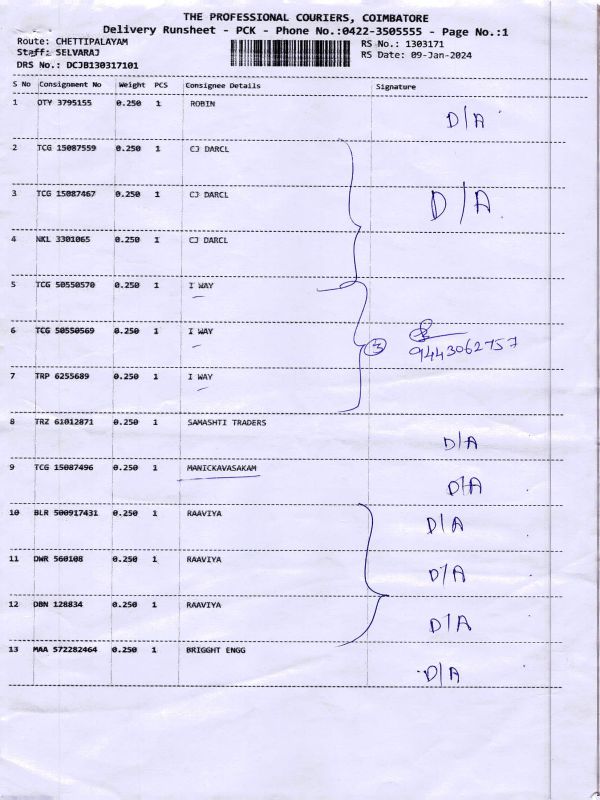 THE PROFESSIONAL COURIERS, COIMBATORE
Delivery Runsheet - PCK - Phone No.:0422-3505555 - Page No.:1
Route: CHETTIPALAYAM RS No.: 1303171
Staff: SELVARAJ RS Date: 09-Jan-2024
DRS No.: DCJB130317101
S No Consignment No Weight PCS Consignee Details Signature
1 OTY 3795155 0.250 1 ROBIN D/A
2 TCG 15087559 0.250 1 CJ DARCL
3 TCG 15087467 0.250 1 CJ DARCL D/A
4 NKL 3301065 0.250 1 CJ DARCL
5 TCG 50550570 0.250 1 I WAY
6 TCG 50550569 0.250 1 I WAY 3 9443062757
7 TRP 6255689 0.250 1 I WAY
8 TRZ 61012871 0.250 1 SAMASHTI TRADERS D/A
9 TCG 15087496 0.250 1 MANICKAVASAKAM D/A
10 BLR 500917431 0.250 1 RAAVIYA D/A
11 DWR 560108 0.250 1 RAAVIYA D/A
12 DBN 128834 0.250 1 RAAVIYA D/A
13 MAA 572282464 0.250 1 BRIGGHT ENGG D/A